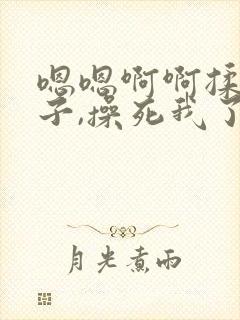 嗯嗯啊啊揉
子,操死我了
月光煮雨